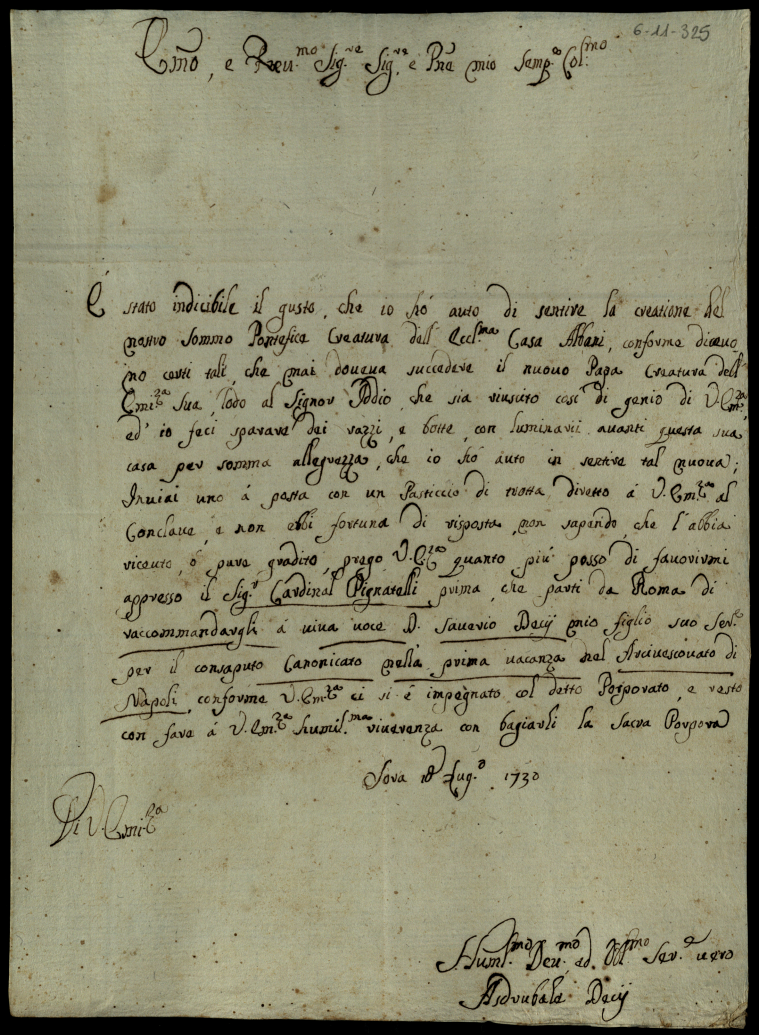 6-11-325
Em̃o, e Reu.mo Sig.re Sig.re e Pñe mio Semp.e Col.mo
É stato indicibile il gusto, che io hó auto di sentire la creatione del
nostro Sommo Pontefice Creatura dell' Eccl.ma Casa Albani, conforme diceuo
no certi tali, che mai doueua succedere il nuouo Papa Creatura dell'
Emi.za Sua, lodo al Signor Iddio, che sia riuscito cosi di genio di V. Em.za
ed' io feci sparare dei razzi, e botte, con luminarii auanti questa sua
casa per somma allegrezza, che io hó auto in sentire tal nuoua;
Inuiai uno á posta con un Pasticcio di trotta diretto á V. Em.za al
Conclave, e non ebbi fortuna di risposta, non sapendo, che l'abbia
riceuto, ó pure gradito, prego V. E.za quanto piú posso di fauorirmi
appresso il Sig.r Cardinal Pignatelli prima, che parti da Roma di
raccommandargli á viua voce D. Sauerio Decij mio figlio suo Ser.e
per il consaputo Canonicato nella prima vacanza nel Arciuescouato di
Napoli, conforme V. Em.za ci si é impegnato col detto Porporato, e resto
con fare á V. Em.za humil.ma riuerenza con bagiarli la Sacra Porpora
Sora Lug.o 1730
Di V. Emi.za
Huml.mo Deu.mo ed Obl.mo Ser.e uero
Asdrubale Decij